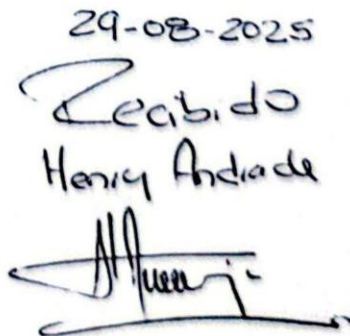 29-08-2025
Recibido
Henry Andrade